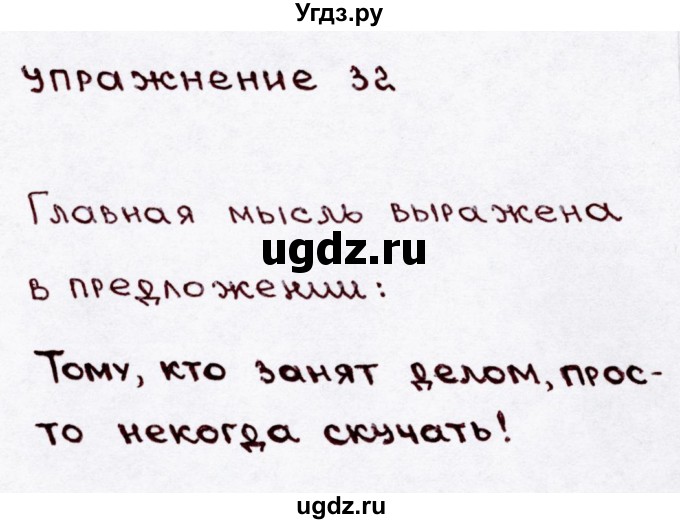 Угдз.ру
упражнение 32
Главная мысль выражена
ugdz.ru
в предложении:
Тому, кто занят делом, прос-
то некогда скучать!
ugdz.ru